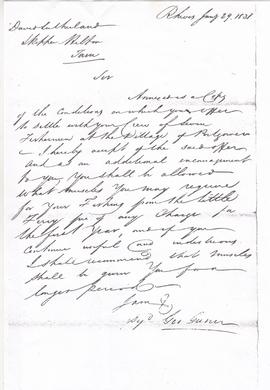 Rhives Jany 29, 1838
David Sutherland
Skipper Hilton
Tain
Sir
Annexed is a Copy
of the Conditions on which you offer
to settle with your Crew of Seven
Fishermen at the Village of
I hereby accept of the said offer
and as an additional encouragement
to you, You shall be allowed
what muscles You may require
for Your Fishing from the Little
Ferry free of any Charge for
the first Year, and if you
continue useful and industrious
I shall recommend that muscles
shall be given You for a
longer period
I am &c
Sigd Geo Gunn